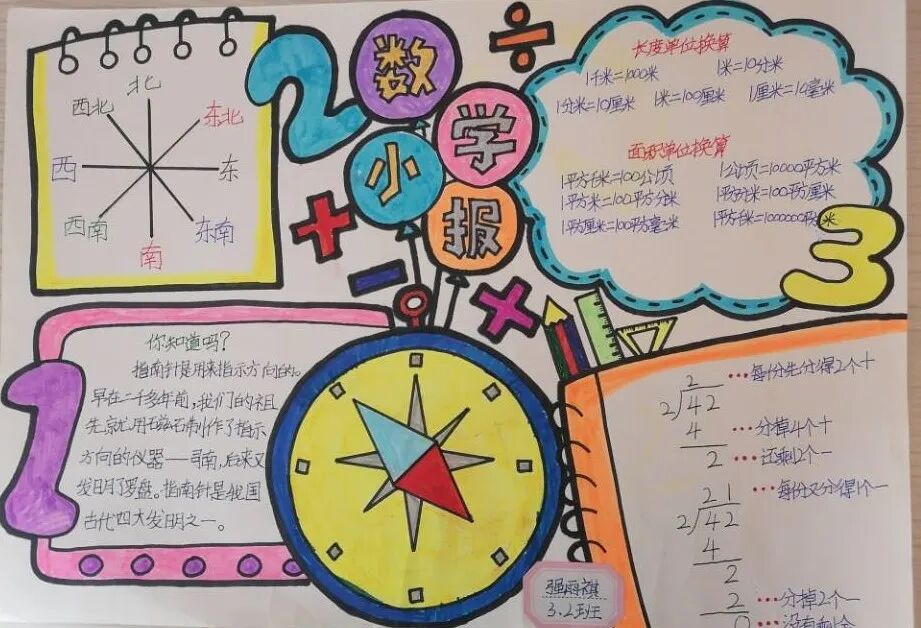 数
学
小
报
2
÷
+
−
×
北
西北
东北
西
东
西南
东南
南
长度单位换算
1千米=1000米
1米=10分米
1分米=10厘米
1米=100厘米
1厘米=10毫米
面积单位换算
1平方千米=100公顷
1公顷=10000平方米
1平方米=100平方分米
1平方分米=100平方厘米
1平方厘米=100平方毫米
1平方千米=1000000平方米
3
1
你知道吗?
指南针是用来指示方向的。
早在二千多年前,我们的祖
先就用磁石制作了指示
方向的仪器——司南,后来又
发明了罗盘。指南针是我国
古代四大发明之一。
2 …每份先分得2个十
2)42
4 …分掉4个十
2 …还剩2个一
21 …每份又分得1个一
2)42
4
2
2 …分掉2个一
0 …没有剩余
强雨祺
3.2班